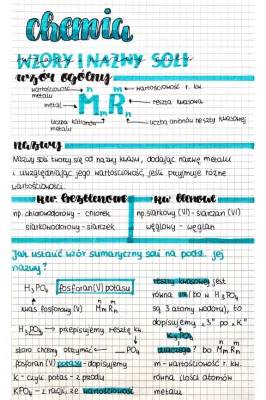 chemia
WZORY I NAZWY SOLI
wzór ogólny
wartościowość metalu
n m
wartościowość r. kw.
metal
M R
m n
reszta kwasowa
liczba kationów metalu
liczba anionów reszty kwasowej
nazwy
Nazwy soli tworzy się od nazwy kwasu, dodając nazwę metalu
i uwzględniając jego wartościowość, jeśli przyjmuje różne
wartościowości.
kw. beztlenowe
kw. tlenowe
np. chlorowodorowy - chlorek
siarkowodorowy - siarczek
np. siarkowy (VI) - siarczan (VI)
węglowy - węglan
Jak ustalić wzór sumaryczny soli na podst. jej
nazwy?
H₃PO₄ fosforan(V) potasu
kwas fosforowy (V) MₘRₙ
H₃PO₄ → przepisujemy resztę kw.
skoro chcemy otrzymać ← __PO₄
fosforan (V) potasu - dopisujemy
K - czyli potas - z przodu
KPO₄ - z racji, że wartościowość
reszty kwasowej jest
równa III (bo w H₃PO₄
są 3 atomy wodoru), to
dopisujemy „3" po „K"
K₃PO₄
dlaczego? bo MₘRₙ
m - wartościowość r. kw.
równa ilości atomów
metalu